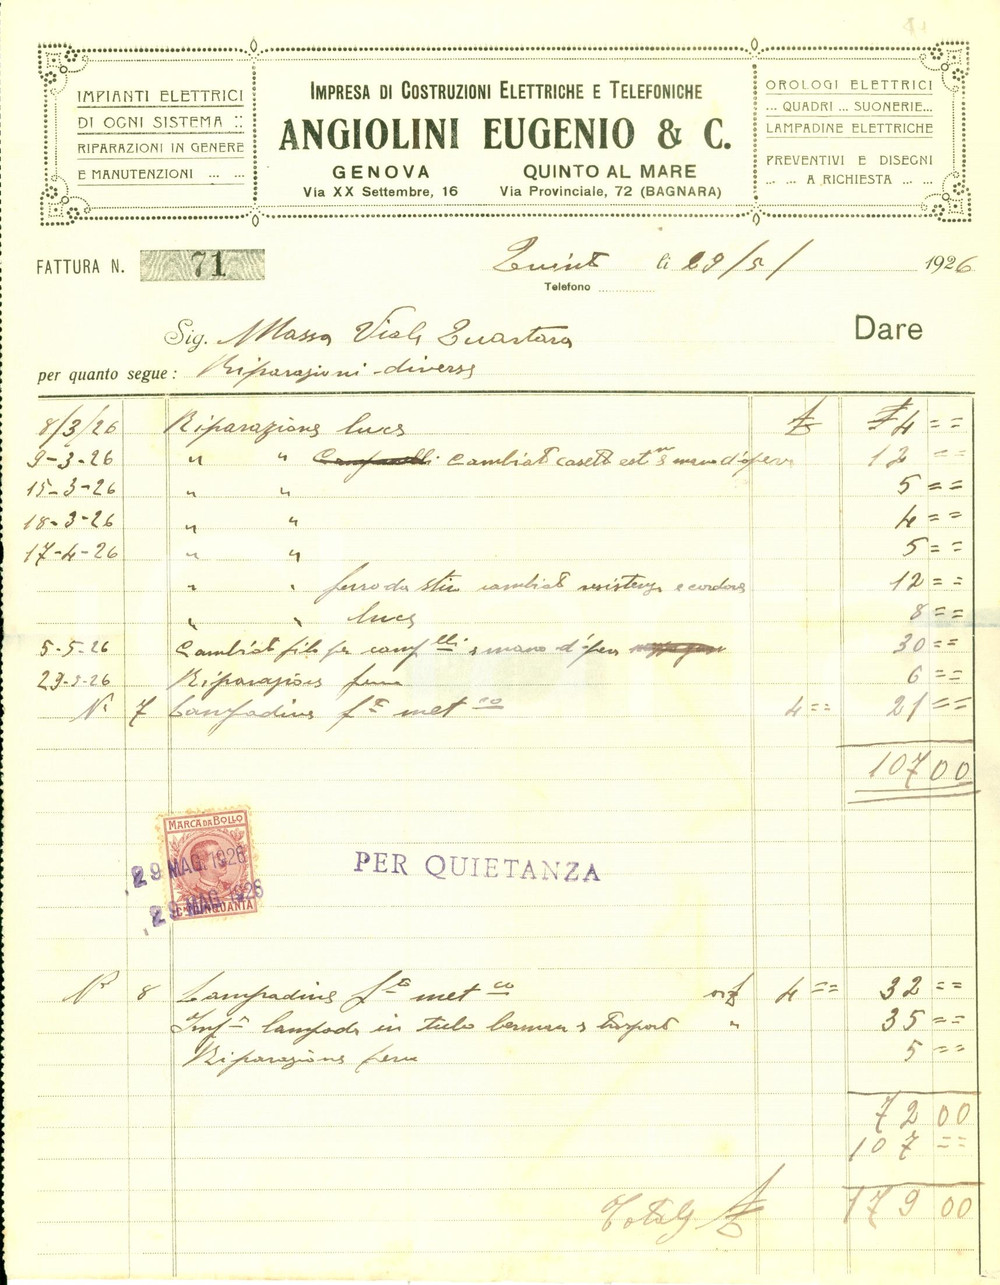 IMPIANTI ELETTRICI
DI OGNI SISTEMA ::
RIPARAZIONI IN GENERE
E MANUTENZIONI ... ...
IMPRESA DI COSTRUZIONI ELETTRICHE E TELEFONICHE
ANGIOLINI EUGENIO & C.
GENOVA
Via XX Settembre, 16
QUINTO AL MARE
Via Provinciale, 72 (BAGNARA)
OROLOGI ELETTRICI
... QUADRI ... SUONERIE...
LAMPADINE ELETTRICHE
PREVENTIVI E DISEGNI
... ... A RICHIESTA ... ...
FATTURA N. 71
Quinto li 29/5/ 1926
Telefono
Sig. Massa Viale Quartara
Dare
per quanto segue: Riparazioni diverse
8/3/26 Riparazione luce £ 4 = =
9-3-26 " " Campanelli Cambiato e mano d'opera 12 = =
15-3-26 " " 5 = =
18-3-26 " " 4 = =
17-4-26 " " 5 = =
" " ferro da stiro cambiato resistenza e cordone 12 = =
" " luce 8 = =
5-5-26 Cambiato filo per camp.lli e mano d'opera 30 = =
Riparazione ferro 6 = =
N° 7 Lampadine met 4 = = 21 = =
107 00
MARCA DA BOLLO
CINQUANTA
29 MAG. 1926
29 MAG. 1926
PER QUIETANZA
N° 8 Lampadine met £ 4 = = 32 = =
lampada in tubo bergman e trasporto " 35 = =
Riparazione ferro 5 = =
72 00
107 = =
Totale £ 179 00